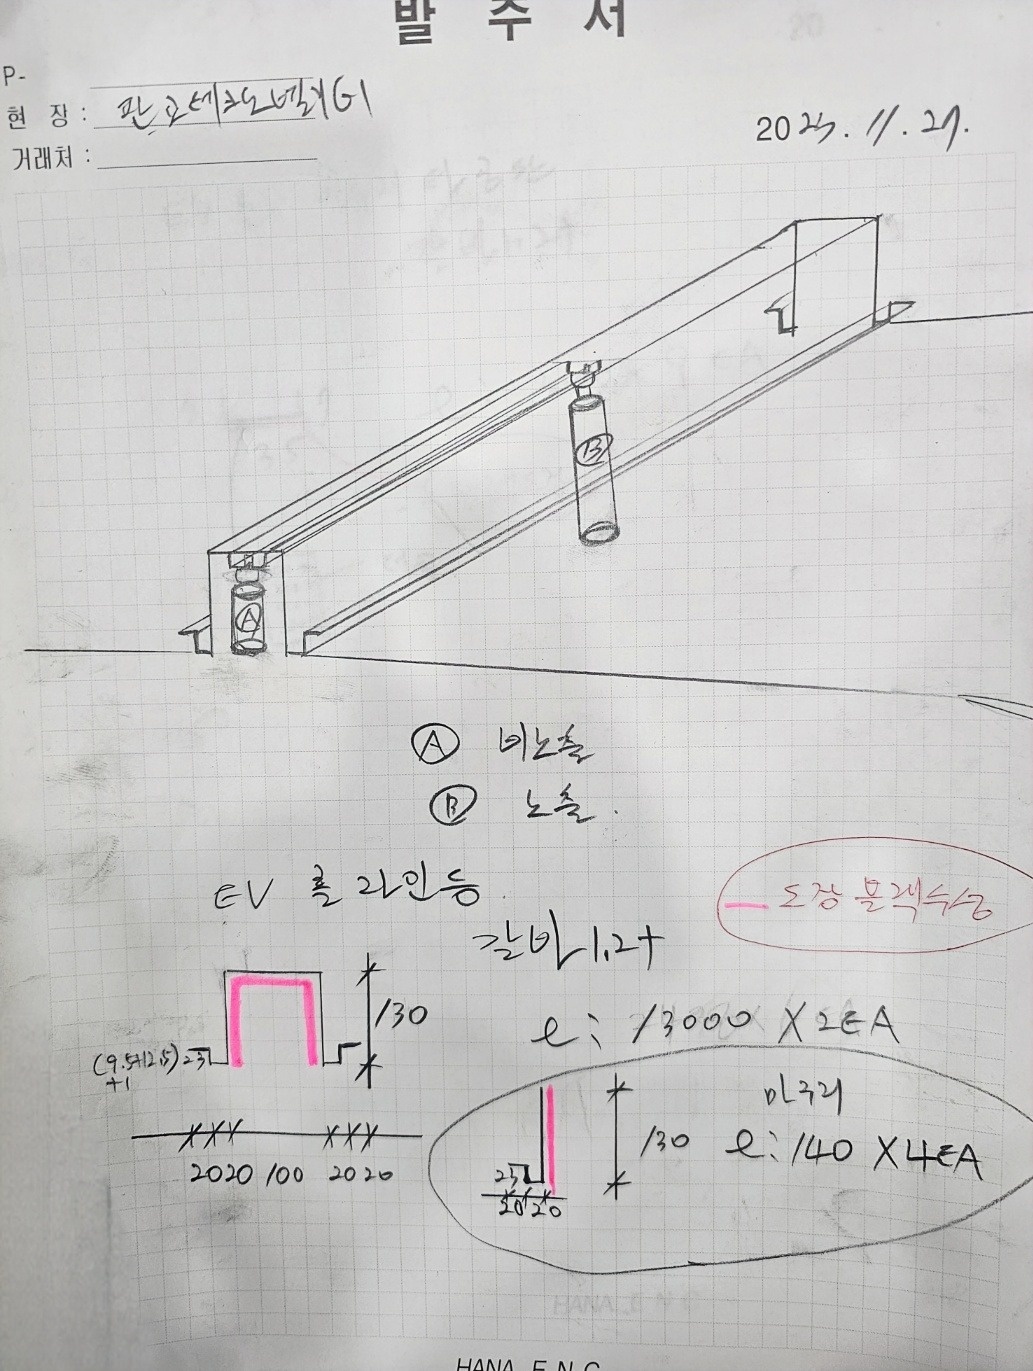 발 주 서
P-
현 장 : 판교테크노밸리G1
거래처 :
2023. 11. 27.
B
A
Ⓐ 비노출
Ⓑ 노출.
EV 홀 라인등
도장 블랙수성
갈바 1.2t
130
ℓ: 13000 X 2EA
(9.5+12.5) 23
+1
2020 100 2020
마구리
130
ℓ: 140 X 4EA
23
20 20
HANA E.N.G